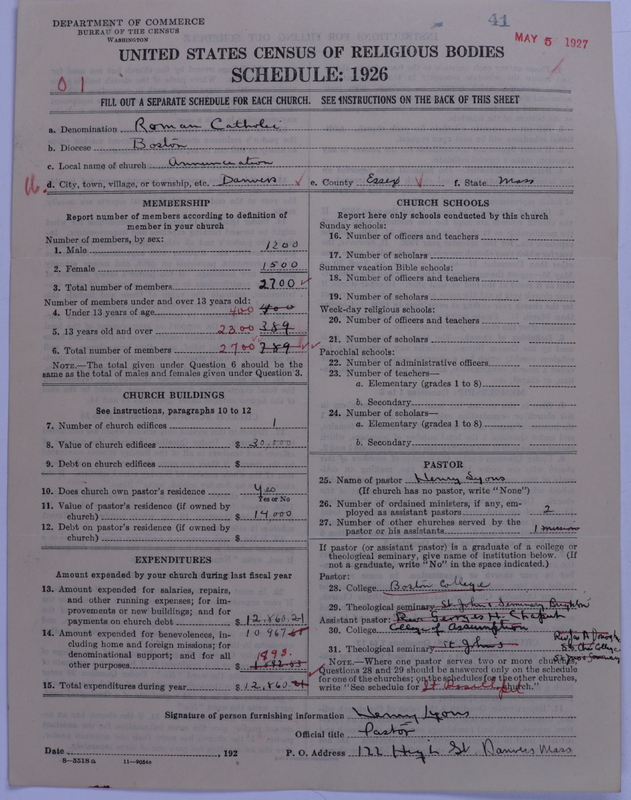 DEPARTMENT OF COMMERCE
BUREAU OF THE CENSUS
WASHINGTON
41
MAY 5 1927
UNITED STATES CENSUS OF RELIGIOUS BODIES
SCHEDULE: 1926
0 1
FILL OUT A SEPARATE SCHEDULE FOR EACH CHURCH. SEE INSTRUCTIONS ON THE BACK OF THIS SHEET
a. Denomination Roman Catholic
b. Diocese Boston
c. Local name of church Annunciation
d. City, town, village, or township, etc. Danvers e. County Essex f. State Mass
MEMBERSHIP
Report number of members according to definition of
member in your church
Number of members, by sex:
1. Male 1200
2. Female 1500
3. Total number of members 2700
Number of members under and over 13 years old:
4. Under 13 years of age 400 400
5. 13 years old and over 2300 389
6. Total number of members 2700 789
NOTE.—The total given under Question 6 should be the
same as the total of males and females given under Question 3.
CHURCH BUILDINGS
See instructions, paragraphs 10 to 12
7. Number of church edifices 1
8. Value of church edifices $ 30,000
9. Debt on church edifices $
10. Does church own pastor's residence Yes
Yes or No
11. Value of pastor's residence (if owned by
church) $ 14,000
12. Debt on pastor's residence (if owned by
church) $
EXPENDITURES
Amount expended by your church during last fiscal year
13. Amount expended for salaries, repairs,
and other running expenses; for im-
provements or new buildings; and for
payments on church debt $ 12,860.21
10967
14. Amount expended for benevolences, in-
cluding home and foreign missions; for
denominational support; and for all
other purposes $ 1893.
15. Total expenditures during year $ 12,860.21
CHURCH SCHOOLS
Report here only schools conducted by this church
Sunday schools:
16. Number of officers and teachers
17. Number of scholars
Summer vacation Bible schools:
18. Number of officers and teachers
19. Number of scholars
Week-day religious schools:
20. Number of officers and teachers
21. Number of scholars
Parochial schools:
22. Number of administrative officers
23. Number of teachers—
a. Elementary (grades 1 to 8)
b. Secondary
24. Number of scholars—
a. Elementary (grades 1 to 8)
b. Secondary
PASTOR
25. Name of pastor Henry Lyons
(If church has no pastor, write "None")
26. Number of ordained ministers, if any, em-
ployed as assistant pastors 2
27. Number of other churches served by the
pastor or his assistants 1 mission
If pastor (or assistant pastor) is a graduate of a college or
theological seminary, give name of institution below. (If
not a graduate, write "No" in the space indicated.)
Pastor:
28. College Boston College
29. Theological seminary St John's Seminary Brighton
Assistant pastor: Rev
30. College College of Assumption
31. Theological seminary St Johns
NOTE.—Where one pastor serves two or more churches,
Questions 28 and 29 should be answered only on the schedule
for one of the churches; on the schedules for the other churches,
write "See schedule for church."
Signature of person furnishing information Henry Lyons
Official title Pastor
Date , 192 P. O. Address 122 High St Danvers Mass
8-5518a 11-9054a